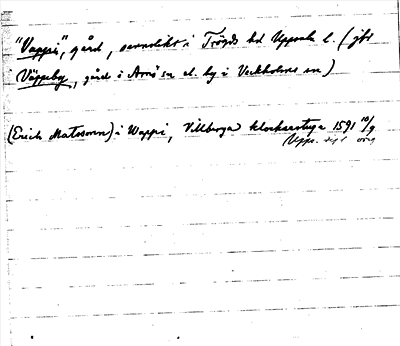 "Vappi", gård, sannolikt i Trögds hd Uppsala l. (jfr
Väppeby, gård i Arnö sn el. by i Veckholms sn)
(Erich Matsson) i Wappi, Villberga klockarstuga 1591 10/9
Upps.